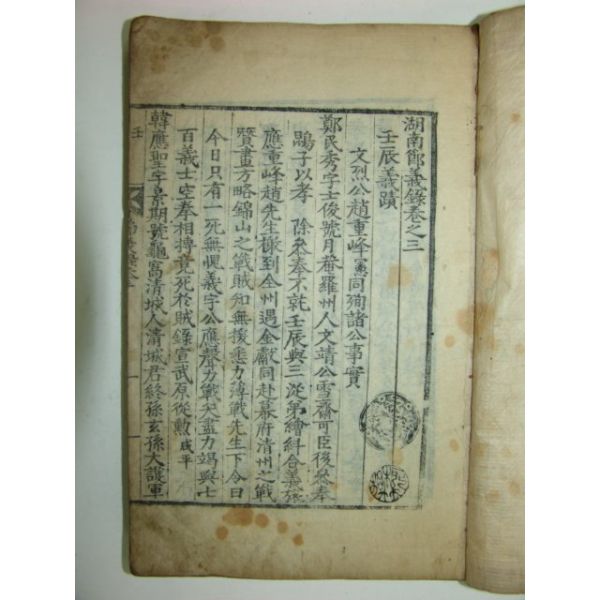 湖南節義錄卷之三
壬辰義蹟
文烈公趙重峰憲同殉諸公事實
鄭民秀字士俊號月菴羅州人文靖公雪齋可臣後參奉
鵾子以孝 除參奉不就壬辰與三從弟繪糾合義旅
應重峰趙先生檄到全州遇金獻同赴幕府淸州之戰
贊畫方略錦山之戰賊知無援悉力薄戰先生下令曰
今日只有一死無愧義字公應聲力戰矢盡力竭與七
百義士空拳相搏竟死於賊錄宣武原從勳 咸平
韓應聖字景期號龜窩淸城人淸城君終孫玄孫大護軍